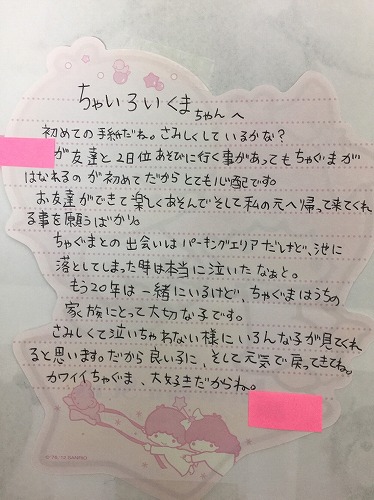 ちゃいろいくまちゃんへ
初めての手紙だね。さみしくしているかな?
が友達と2日位あそびに行く事があってもちゃぐまが
はなれるのが初めてだからとても心配です。
お友達ができて楽しくあそんでそして私の元へ帰って来てくれ
る事を願うばかり。
ちゃぐまとの出会いはパーキングエリアだけど、池に
落としてしまった時は本当に泣いたなぁと。
もう20年は一緒にいるけど、ちゃぐまはうちの
家族にとって大切な子です。
さみしくて泣いちゃわない様にいろんな子が見てくれ
ると思います。だから良い子に、そして元気で戻ってきてね。
カワイイちゃぐま、大好きだからね。
© '76, '13 SANRIO